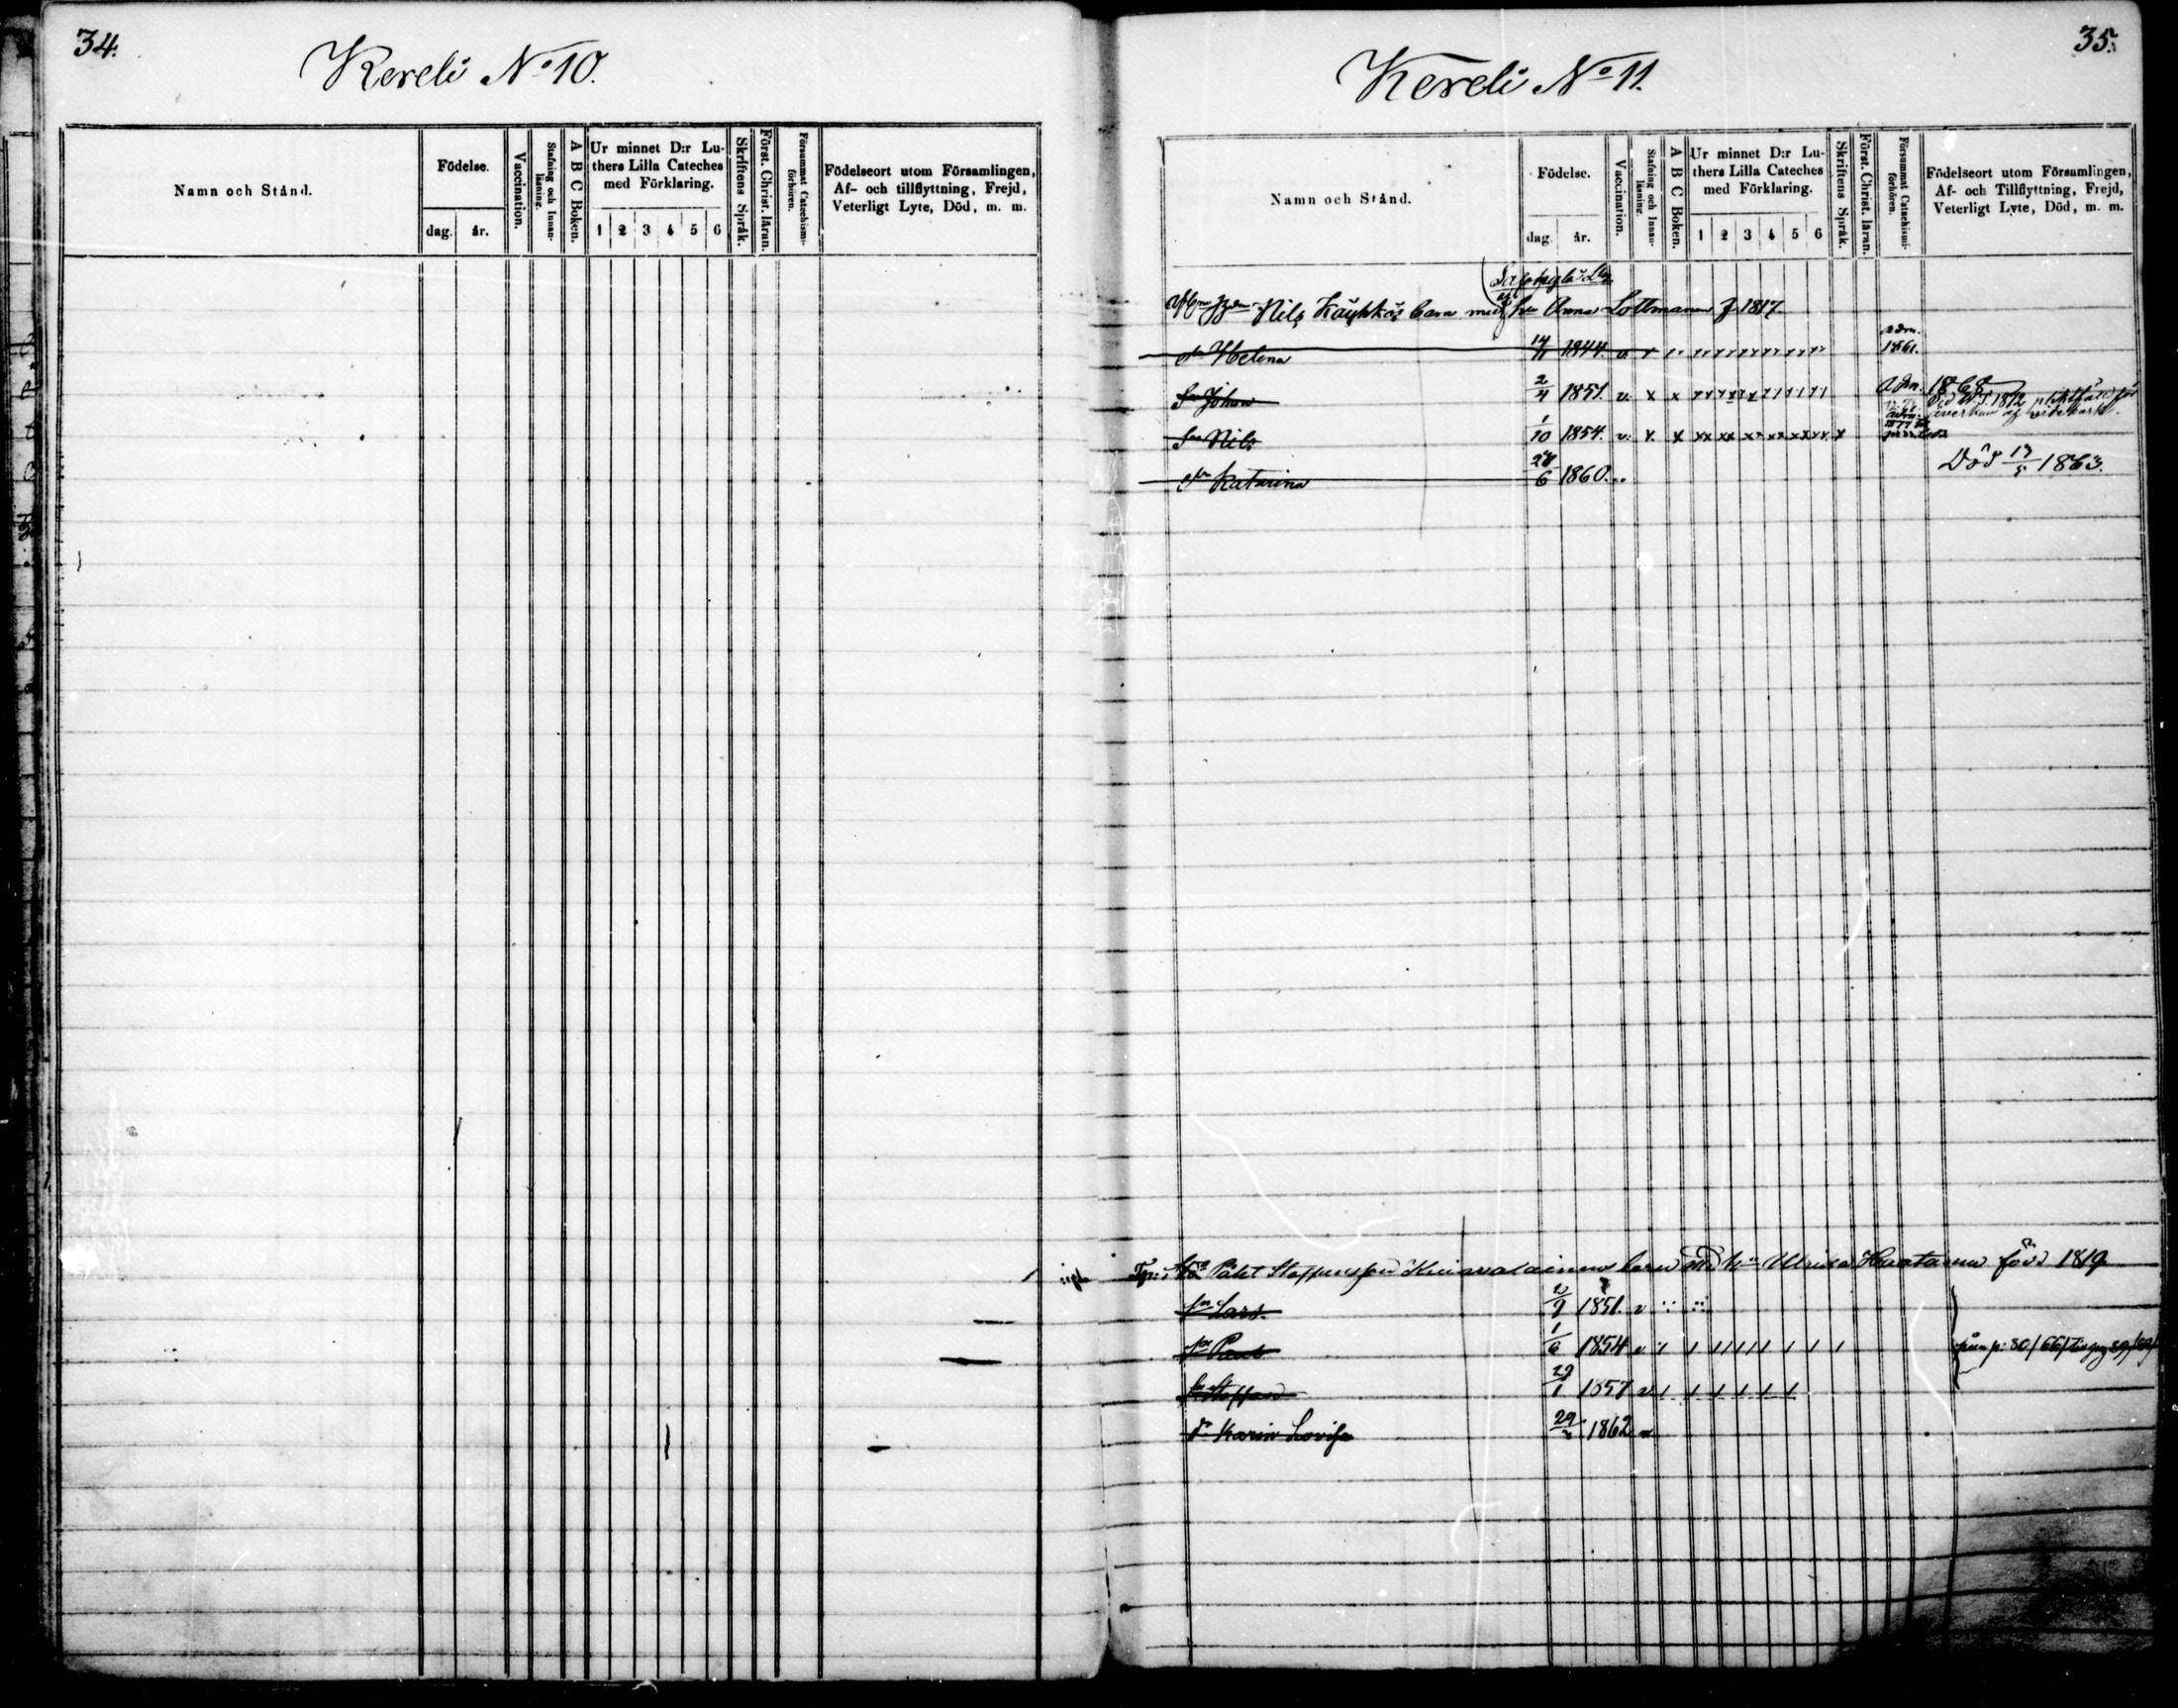 34.
Kereli No 10.
Namn och Stånd.
Födelse.
dag. år.
Vaccination.
Stafning och Innan-
läsning.
A B C Boken.
Ur minnet D:r Lu-
thers Lilla Cateches
med Förklaring.
1 2 3 4 5 6
Skriftens Språk.
Först. Christ. läran.
Försummat Catechismi-
förhören.
Födelseort utom Församlingen,
Af- och tillflyttning, Frejd,
Veterligt Lyte, Död, m. m.
35.
Kereli No 11.
Namn och Stånd.
Födelse.
dag. år.
Vaccination.
Stafning och Innan-
läsning.
A B C Boken.
Ur minnet D:r Lu-
thers Lilla Cateches
med Förklaring.
1 2 3 4 5 6
Skriftens Språk.
Först. Christ. läran.
Försummat Catechismi-
förhören.
Födelseort utom Församlingen,
Af- och Tillflyttning, Frejd,
Veterligt Lyte, Död, m. m.
Nils Käyhkös barn med hu Anna Lottmanen f. 1817.
Helena 14/11 1844. v. 1861.
Sn Johan 2/4 1851. v. x x Adm. 1868
Sn Nils 1/10 1854. v. x x xx xx xx xx xx xx x
dr Katarina 28/6 1860. Död 13/5 1863.
Påhl Steffansson barn med hu Ulrika född 1819
sn Lars. 2/9 1851. v
sn Paul 1/6 1854 v
sn Steffan 29/1 1857 v
dr Karin Lovisa 29 1862 v